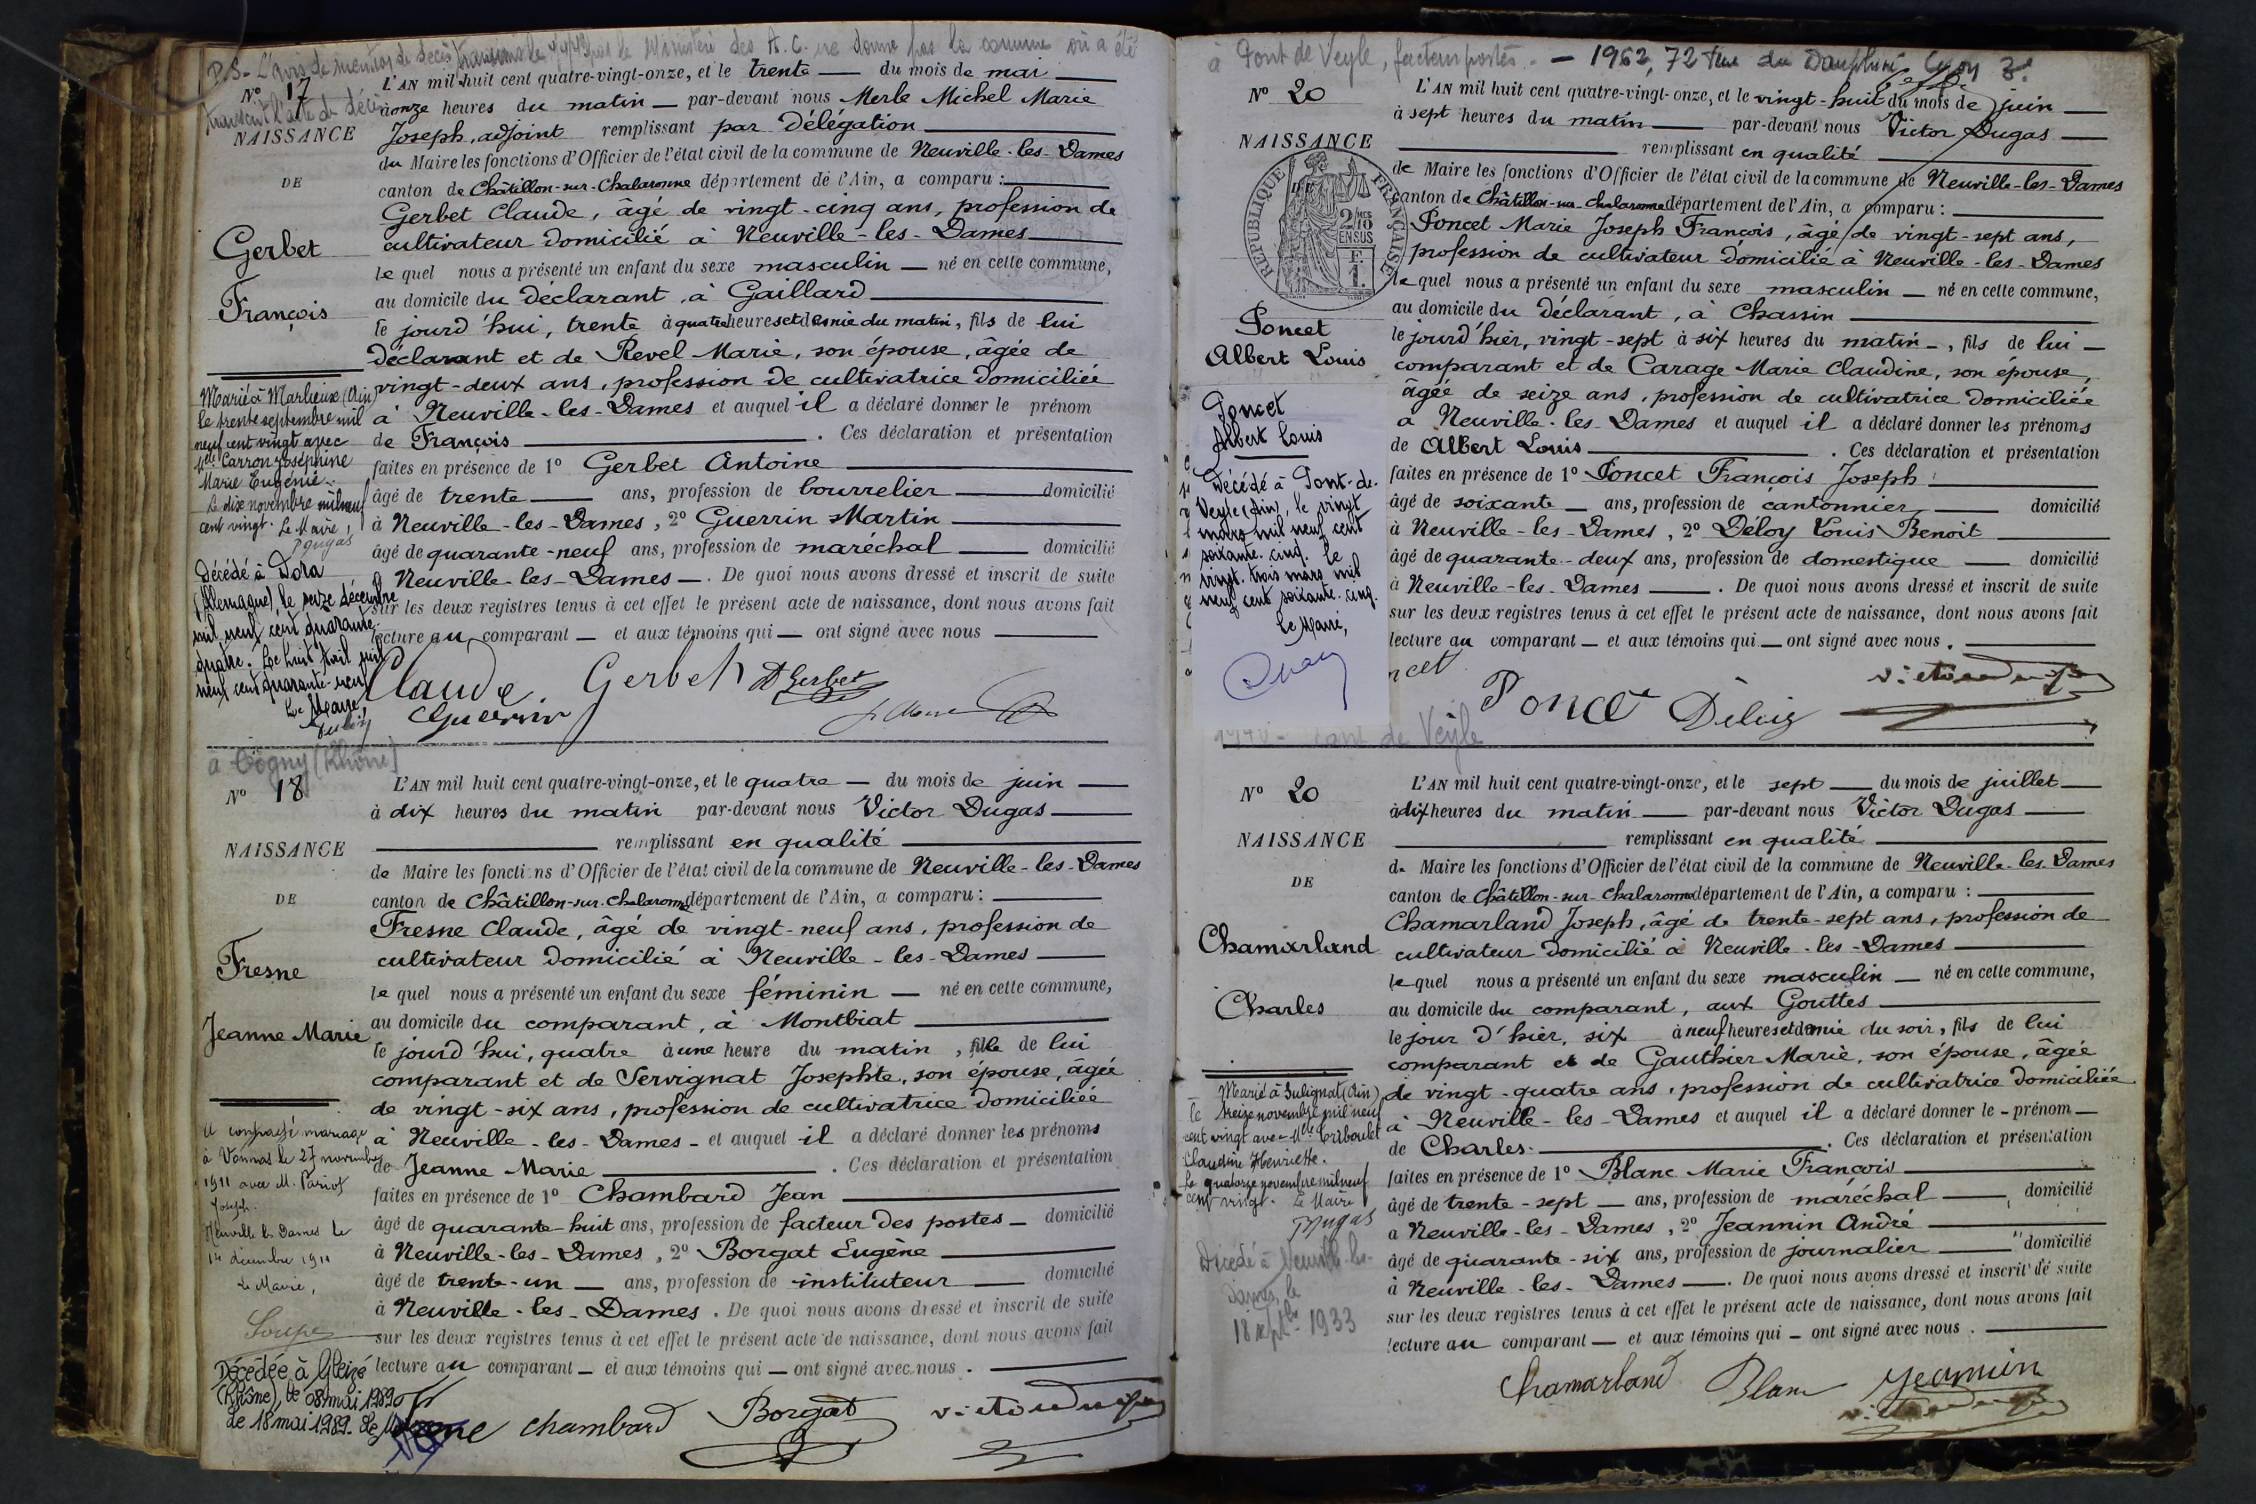 P.S. - L'avis de mention de décès transmis le par le Ministère des A.C. ne donne pas la commune où a été
transcrit l'acte de décès
N° 17
NAISSANCE
DE
Gerbet
François
L'AN mil huit cent quatre-vingt-onze, et le trente du mois de mai
à onze heures du matin par-devant nous Merle Michel Marie
Joseph, adjoint remplissant par délégation
du Maire les fonctions d'Officier de l'état civil de la commune de Neuville-les-Dames
canton de Châtillon-sur-Chalaronne département de l'Ain, a comparu :
Gerbet Claude, âgé de vingt-cinq ans, profession de
cultivateur domicilié à Neuville-les-Dames
le quel nous a présenté un enfant du sexe masculin né en cette commune,
au domicile du déclarant, à Gaillard
le jourd'hui, trente à quatre heures et demie du matin, fils de lui
déclarant et de Revel Marie, son épouse, âgée de
vingt-deux ans, profession de cultivatrice domiciliée
à Neuville-les-Dames et auquel il a déclaré donner le prénom
de François . Ces déclaration et présentation
faites en présence de 1° Gerbet Antoine
âgé de trente ans, profession de bourrelier domicilié
à Neuville-les-Dames, 2° Guerrin Martin
âgé de quarante-neuf ans, profession de maréchal domicilié
Neuville-les-Dames. De quoi nous avons dressé et inscrit de suite
sur les deux registres tenus à cet effet le présent acte de naissance, dont nous avons fait
lecture au comparant et aux témoins qui ont signé avec nous
Claude Gerbet A Gerbet
Guerrin
Marié à Marlieux (Ain)
le trente septembre mil
neuf cent vingt avec
Mlle Carron Joséphine
Marie Eugénie.
Le dix novembre mil neuf
cent vingt. Le Maire,
Dugas
Décédé à Dora
(Allemagne), le seize décembre
mil neuf cent quarante
quatre. Le huit avril mil
neuf cent quarante-neuf
Le Maire,
à Cogny (Rhône)
N° 18
NAISSANCE
DE
Fresne
Jeanne Marie
L'AN mil huit cent quatre-vingt-onze, et le quatre du mois de juin
à dix heures du matin par-devant nous Victor Dugas
remplissant en qualité
de Maire les fonctions d'Officier de l'état civil de la commune de Neuville-les-Dames
canton de Châtillon-sur-Chalaronne département de l'Ain, a comparu :
Fresne Claude, âgé de vingt-neuf ans, profession de
cultivateur domicilié à Neuville-les-Dames
le quel nous a présenté un enfant du sexe féminin né en cette commune,
au domicile du comparant, à Montbiat
le jourd'hui, quatre à une heure du matin, fille de lui
comparant et de Servignat Josephte, son épouse, âgée
de vingt-six ans, profession de cultivatrice domiciliée
à Neuville-les-Dames et auquel il a déclaré donner les prénoms
de Jeanne Marie . Ces déclaration et présentation
faites en présence de 1° Chambard Jean
âgé de quarante-huit ans, profession de facteur des postes domicilié
à Neuville-les-Dames, 2° Borgat Eugène
âgé de trente-un ans, profession de instituteur domicilié
à Neuville-les-Dames. De quoi nous avons dressé et inscrit de suite
sur les deux registres tenus à cet effet le présent acte de naissance, dont nous avons fait
lecture au comparant et aux témoins qui ont signé avec nous.
Fresne chambard Borgat victor dugas
A contracté mariage
à Vonnas le 27 novembre
1911 avec M. Pariot
Joseph.
Neuville les Dames le
1er décembre 1911
Le Maire,
Soupe
Décédée à Gleizé
(Rhône), le 08 mai 1989
le 18 mai 1989. Le
à Pont de Veyle, facteur postes. - 1962, 72 rue du Dauphiné Lyon 3e
N° 20
NAISSANCE
RÉPUBLIQUE FRANÇAISE
2/10 EN SUS
F. 1.
Poncet
Albert Louis
L'AN mil huit cent quatre-vingt-onze, et le vingt-huit du mois de juin
à sept heures du matin par-devant nous Victor Dugas
remplissant en qualité
de Maire les fonctions d'Officier de l'état civil de la commune de Neuville-les-Dames
canton de Châtillon-sur-Chalaronne département de l'Ain, a comparu :
Poncet Marie Joseph François, âgé de vingt-sept ans,
profession de cultivateur domicilié à Neuville-les-Dames
le quel nous a présenté un enfant du sexe masculin né en cette commune,
au domicile du déclarant, à Chassin
le jourd'hier, vingt-sept à six heures du matin, fils de lui
comparant et de Carage Marie Claudine, son épouse,
âgée de seize ans, profession de cultivatrice domiciliée
à Neuville-les-Dames et auquel il a déclaré donner les prénoms
de Albert Louis . Ces déclaration et présentation
faites en présence de 1° Poncet François Joseph
âgé de soixante ans, profession de cantonnier domicilié
à Neuville-les-Dames, 2° Déloy Louis Benoit
âgé de quarante-deux ans, profession de domestique domicilié
à Neuville-les-Dames. De quoi nous avons dressé et inscrit de suite
sur les deux registres tenus à cet effet le présent acte de naissance, dont nous avons fait
lecture au comparant et aux témoins qui ont signé avec nous.
ncet Poncet Déloy victor dugas
Poncet
Albert Louis
Décédé à Pont-de-
Veyle (Ain), le vingt
mars mil neuf cent
soixante-cinq. Le
vingt-trois mars mil
neuf cent soixante-cinq.
Le Maire,
de Veyle
N° 20
NAISSANCE
DE
Chamarland
Charles
L'AN mil huit cent quatre-vingt-onze, et le sept du mois de juillet
à dix heures du matin par-devant nous Victor Dugas
remplissant en qualité
de Maire les fonctions d'Officier de l'état civil de la commune de Neuville-les-Dames
canton de Châtillon-sur-Chalaronne département de l'Ain, a comparu :
Chamarland Joseph, âgé de trente-sept ans, profession de
cultivateur domicilié à Neuville-les-Dames
le quel nous a présenté un enfant du sexe masculin né en cette commune,
au domicile du comparant, aux Gouttes
le jour d'hier, six à neuf heures et demie du soir, fils de lui
comparant et de Gauthier Marie, son épouse, âgée
de vingt-quatre ans, profession de cultivatrice domiciliée
à Neuville-les-Dames et auquel il a déclaré donner le prénom
de Charles. Ces déclaration et présentation
faites en présence de 1° Blanc Marie François
âgé de trente-sept ans, profession de maréchal domicilié
à Neuville-les-Dames, 2° Jeannin André
âgé de quarante-six ans, profession de journalier domicilié
à Neuville-les-Dames. De quoi nous avons dressé et inscrit de suite
sur les deux registres tenus à cet effet le présent acte de naissance, dont nous avons fait
lecture au comparant et aux témoins qui ont signé avec nous.
Chamarland Blanc Jeannin
victor dugas
Marié à Sulignat (Ain)
le treize novembre mil neuf
cent vingt avec Mlle Criboulet
Claudine Henriette.
Le quatorze novembre mil neuf
cent vingt. Le Maire
Dugas
Décédé à Neuville-les-
Dames, le
18 septbre 1933